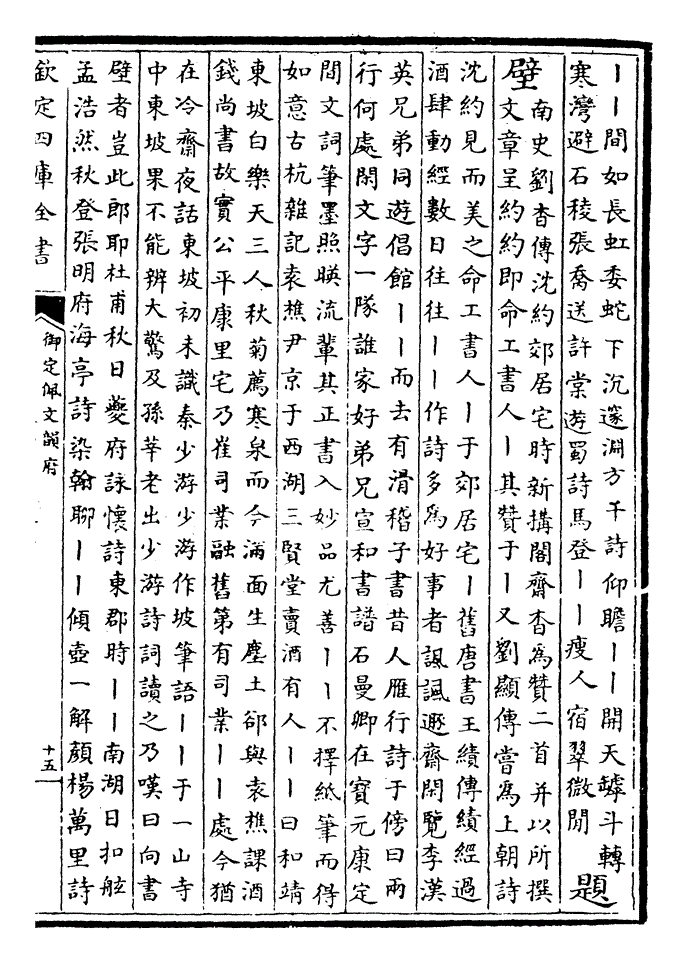 丨丨間如長虹委蛇下沉邃淵方干詩仰瞻丨丨開天罅斗轉
寒灣避石稜張喬送許棠遊蜀詩馬登丨丨瘦人宿翠微閒
題
壁
南史劉杳傳沈約郊居宅時新搆閣齋杳為贊二首并以所撰
文章呈約約即命工書人丨其贊于丨又劉顯傳嘗為上朝詩
沈約見而美之命工書人丨于郊居宅丨舊唐書王績傳績經過
酒肆動經數日往往丨丨作詩多為好事者諷諷遯齋閒覽李漢
英兄弟同遊倡館丨丨而去有滑稽子書昔人雁行詩于傍曰兩
行何處閒文字一隊誰家好弟兄宣和書譜石曼卿在寶元康定
間文詞筆墨照暎流輩其正書入妙品尤善丨丨不擇紙筆而得
如意古杭雜記袁樵尹京于西湖三賢堂賣酒有人丨丨曰和靖
東坡白樂天三人秋菊薦寒泉而今滿面生塵土郤與袁樵課酒
錢尚書故實公平康里宅乃崔司業融舊第有司業丨丨處今猶
在冷齋夜話東坡初未識秦少游少游作坡筆語丨丨于一山寺
中東坡果不能辨大驚及孫莘老出少游詩詞讀之乃嘆曰向書
壁者豈此郎耶杜甫秋日夔府詠懷詩東郡時丨丨南湖日扣舷
孟浩然秋登張明府海亭詩染翰聊丨丨傾壺一解顏楊萬里詩
欽定四庫全書
御定佩文韻府
十五